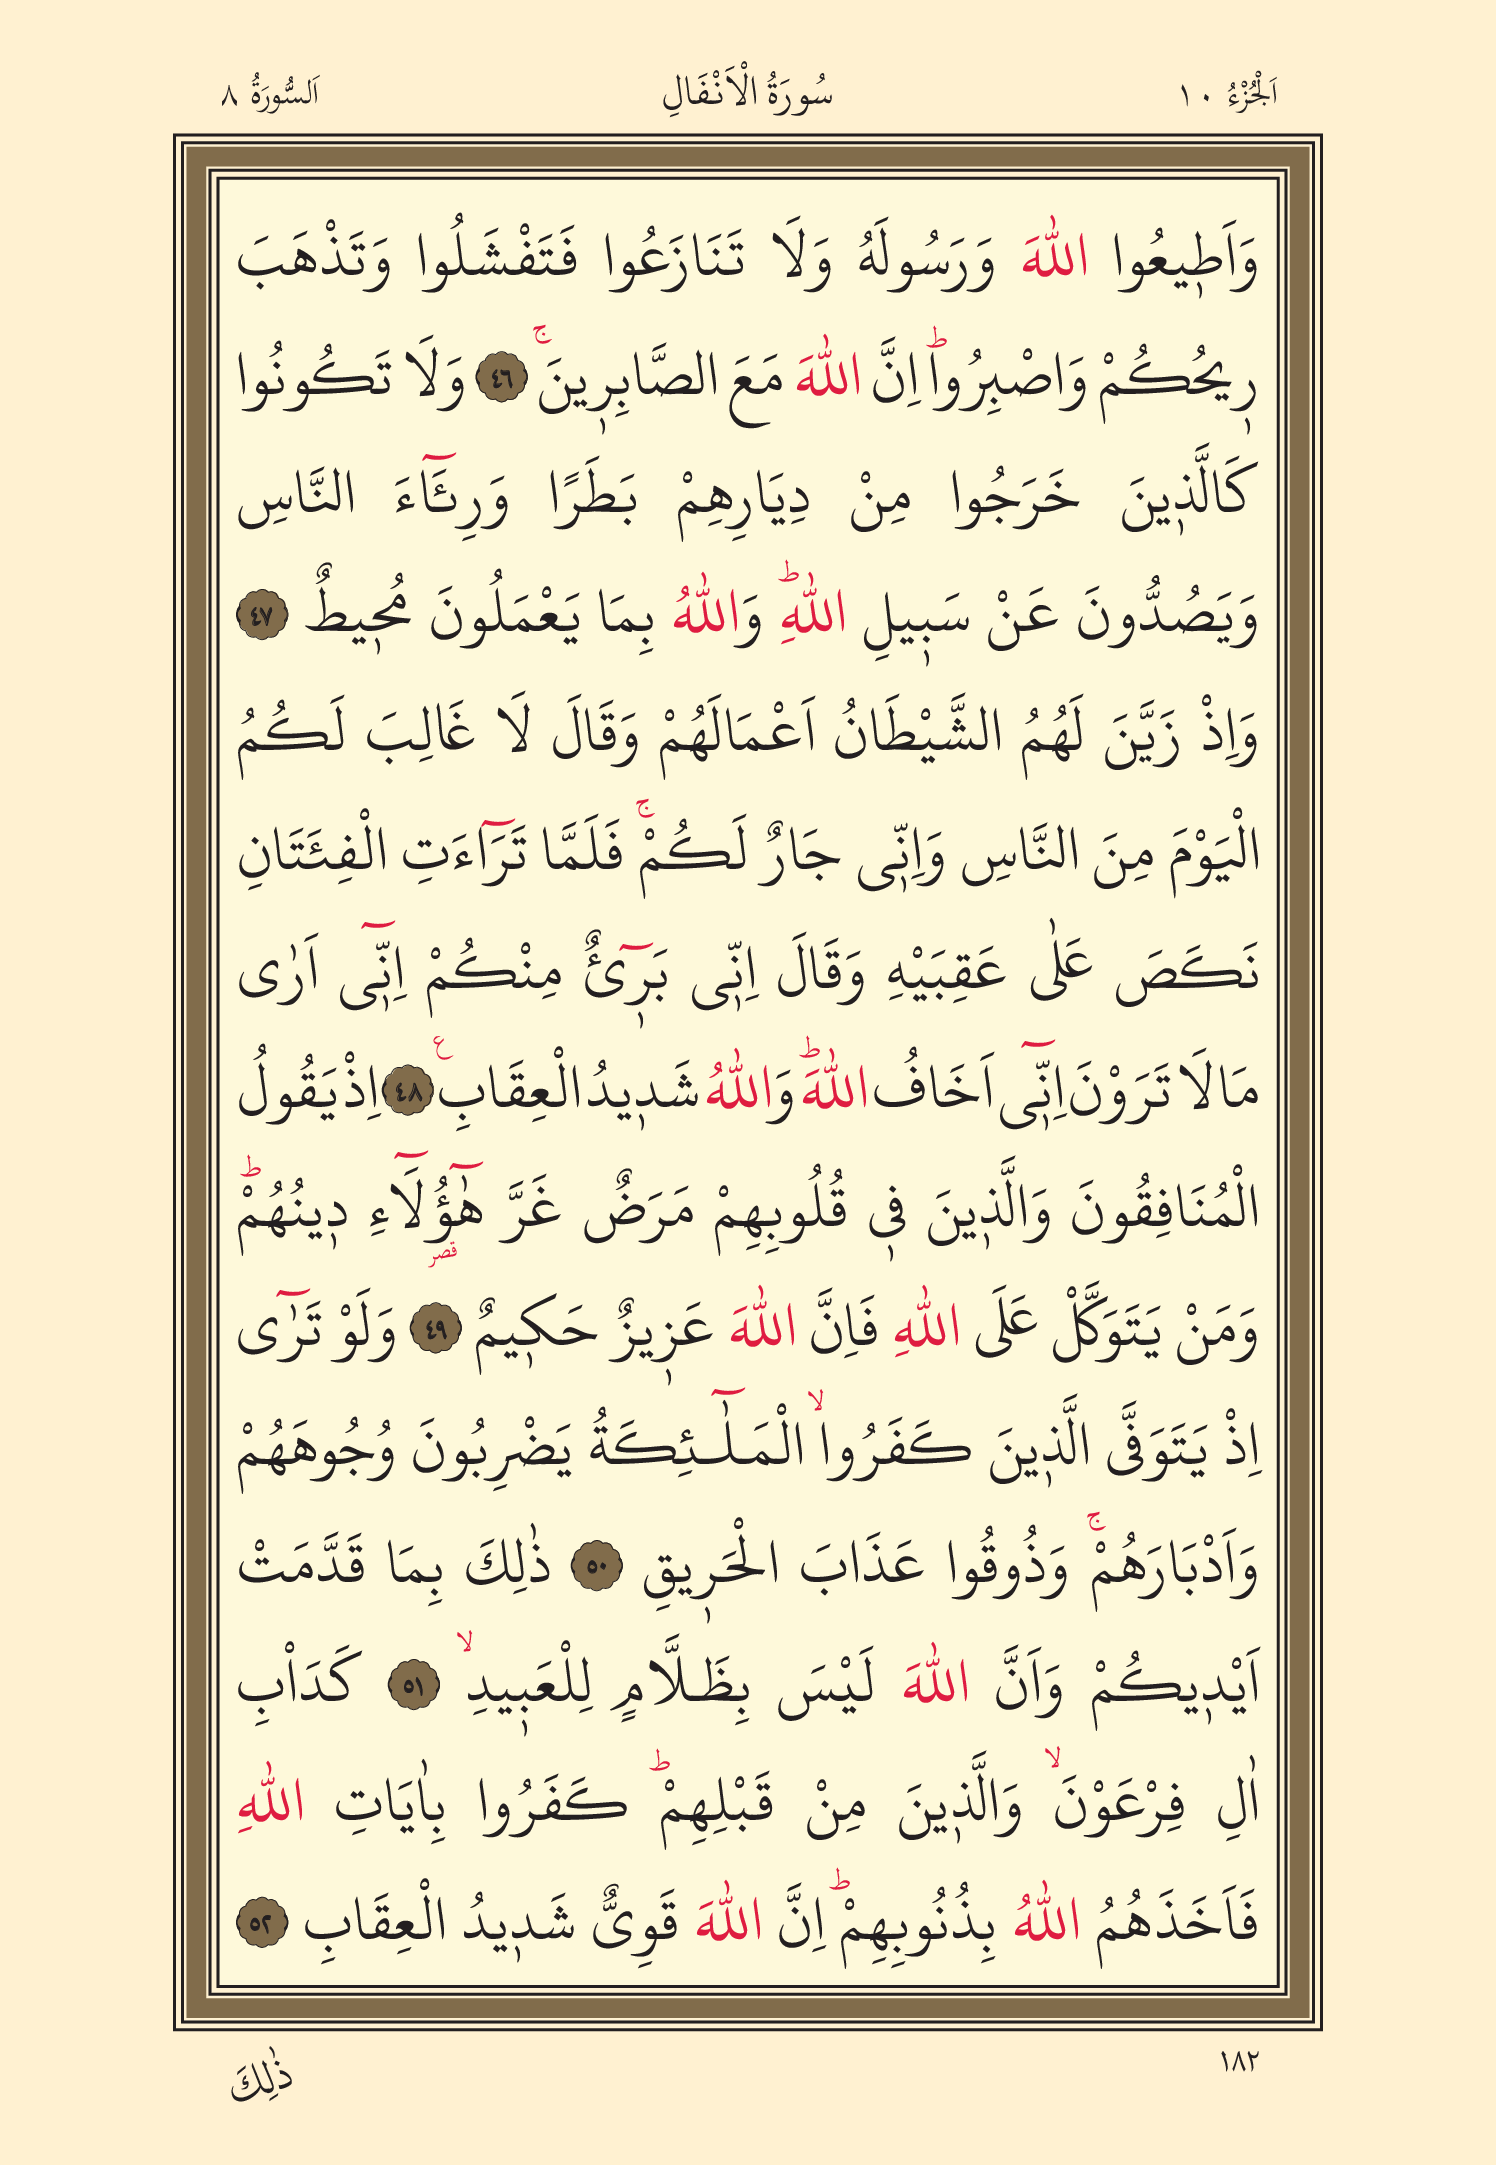 اَلْجُزْءُ ١٠ سُورَةُ الْاَنْفَالِ اَلسُّورَةُ ٨
وَاَطٖيعُوا اللّٰهَ وَرَسُولَهُ وَلَا تَنَازَعُوا فَتَفْشَلُوا وَتَذْهَبَ
رٖيحُكُمْ وَاصْبِرُواؕ اِنَّ اللّٰهَ مَعَ الصَّابِرٖينَۚ ٤٦ وَلَا تَكُونُوا
كَالَّذٖينَ خَرَجُوا مِنْ دِيَارِهِمْ بَطَرًا وَرِئَٓاءَ النَّاسِ
وَيَصُدُّونَ عَنْ سَبٖيلِ اللّٰهِؕ وَاللّٰهُ بِمَا يَعْمَلُونَ مُحٖيطٌ ٤٧
وَاِذْ زَيَّنَ لَهُمُ الشَّيْطَانُ اَعْمَالَهُمْ وَقَالَ لَا غَالِبَ لَكُمُ
الْيَوْمَ مِنَ النَّاسِ وَاِنّٖى جَارٌ لَكُمْۚ فَلَمَّا تَرَٓاءَتِ الْفِئَتَانِ
نَكَصَ عَلٰى عَقِبَيْهِ وَقَالَ اِنّٖى بَرٖٓئٌ مِنْكُمْ اِنّٖٓى اَرٰى
مَالَا تَرَوْنَ اِنّٖٓى اَخَافُ اللّٰهَؕ وَاللّٰهُ شَدٖيدُ الْعِقَابِࣖ ٤٨ اِذْ يَقُولُ
الْمُنَافِقُونَ وَالَّذٖينَ فٖى قُلُوبِهِمْ مَرَضٌ غَرَّ هٰٓؤُ۬لَٓاءِ دٖينُهُمْؕ
قصر
وَمَنْ يَتَوَكَّلْ عَلَى اللّٰهِ فَاِنَّ اللّٰهَ عَزٖيزٌ حَكٖيمٌ ٤٩ وَلَوْ تَرٰٓى
اِذْ يَتَوَفَّى الَّذٖينَ كَفَرُواۙ الْمَلٰٓئِكَةُ يَضْرِبُونَ وُجُوهَهُمْ
وَاَدْبَارَهُمْۚ وَذُوقُوا عَذَابَ الْحَرٖيقِ ٥٠ ذٰلِكَ بِمَا قَدَّمَتْ
اَيْدٖيكُمْ وَاَنَّ اللّٰهَ لَيْسَ بِظَلَّامٍ لِلْعَبٖيدِۙ ٥١ كَدَاْبِ
اٰلِ فِرْعَوْنَۙ وَالَّذٖينَ مِنْ قَبْلِهِمْؕ كَفَرُوا بِاٰيَاتِ اللّٰهِ
فَاَخَذَهُمُ اللّٰهُ بِذُنُوبِهِمْؕ اِنَّ اللّٰهَ قَوِىٌّ شَدٖيدُ الْعِقَابِ ٥٢
١٨٢ ذٰلِكَ